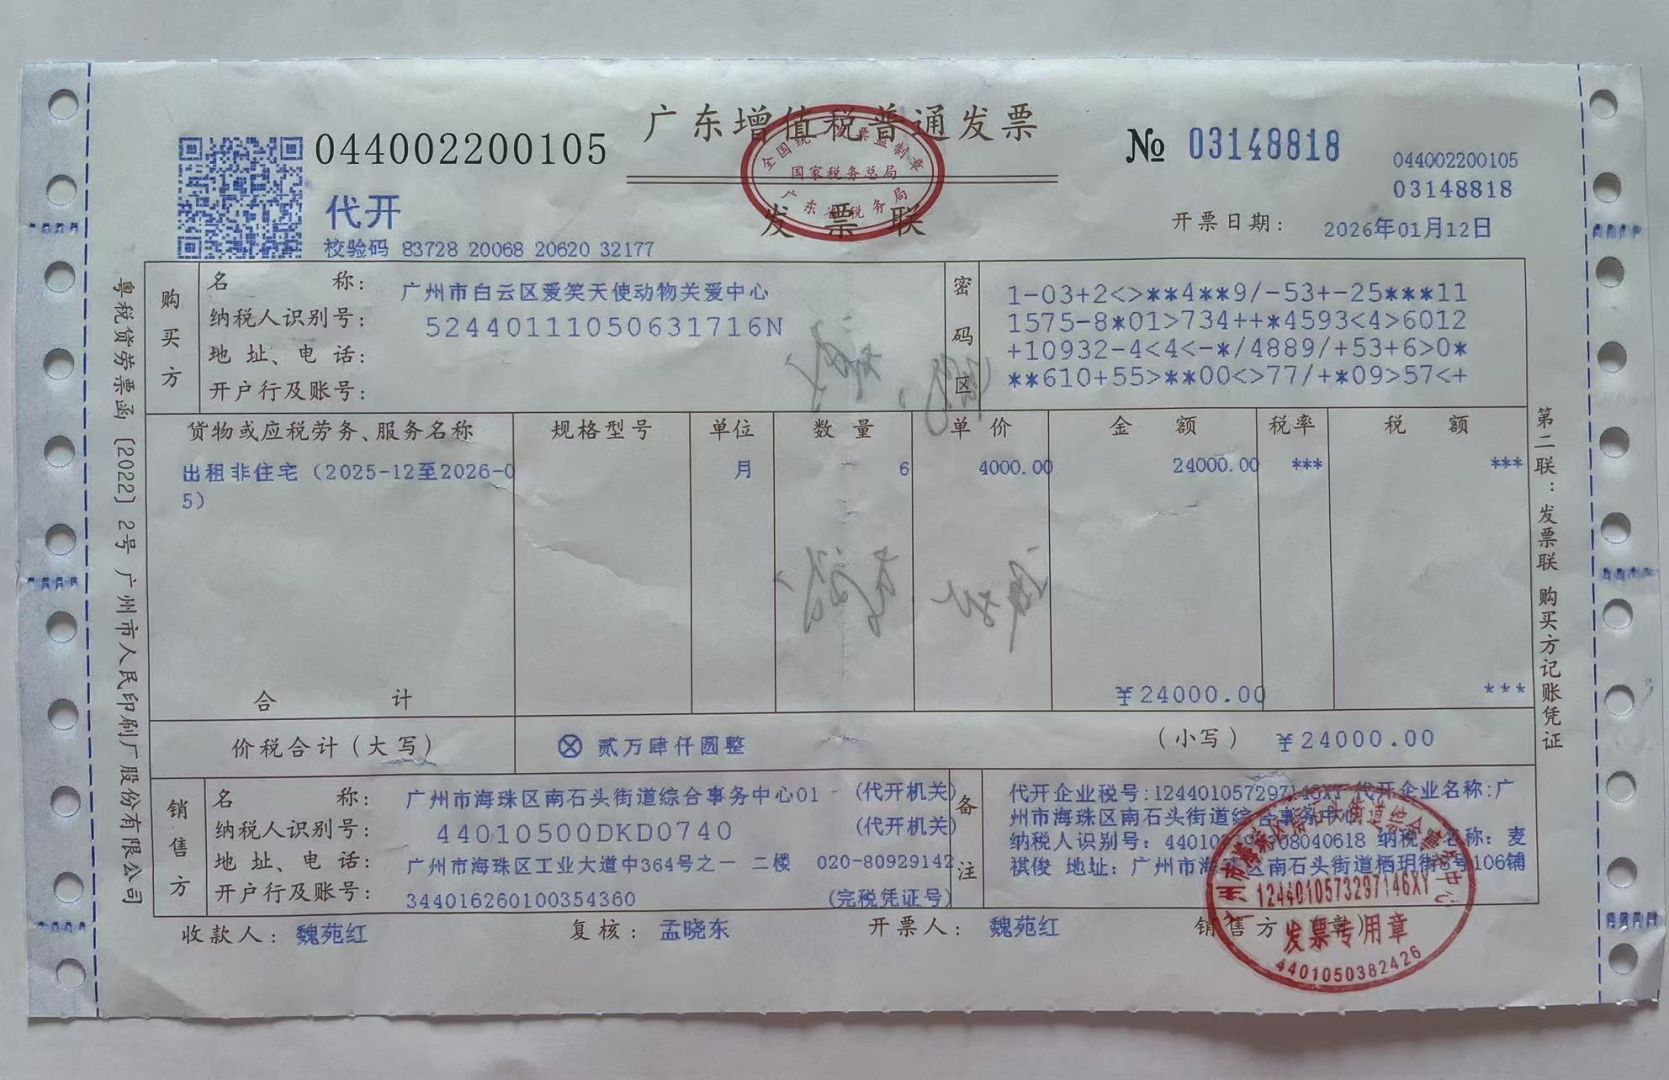 广东增值税普通发票
发票联
全国统一发票监制章
国家税务总局
广东省税务局
044002200105
代开
校验码 83728 20068 20620 32177
№ 03148818
044002200105
03148818
开票日期: 2026年01月12日
购买方
名称: 广州市白云区爱笑天使动物关爱中心
纳税人识别号: 52440111050631716N
地址、电话:
开户行及账号:
密码区
1-03+2<>**4**9/-53+-25***11
1575-8*01>734++*4593<4>6012
+10932-4<4<-*/4889/+53+6>0*
**610+55>**00<>77/+*09>57<+
货物或应税劳务、服务名称 规格型号 单位 数量 单价 金额 税率 税额
出租非住宅（2025-12至2026-0 月 6 4000.00 24000.00 *** ***
5）
合计 ¥24000.00 ***
价税合计（大写） ⊗ 贰万肆仟圆整 （小写） ¥24000.00
销售方
名称: 广州市海珠区南石头街道综合事务中心01 (代开机关)
纳税人识别号: 44010500DKD0740 (代开机关)
地址、电话: 广州市海珠区工业大道中364号之一 二楼 020-80929142
开户行及账号: 344016260100354360 (完税凭证号)
备注
代开企业税号:12440105729714 代开企业名称:广
州市海珠区南石头街道综合事务中心
纳税人识别号: 08040618 纳税人名称: 麦
祺俊 地址: 广州市海珠区南石头街道栖玥街 号106铺
收款人: 魏苑红 复核: 孟晓东 开票人: 魏苑红 销售方:(章)
广州市海珠区南石头街道综合事务中心
1244010573297146XY
发票专用章
4401050382426
粤税货劳票函〔2022〕2号 广州市人民印刷厂股份有限公司
第二联:发票联 购买方记账凭证